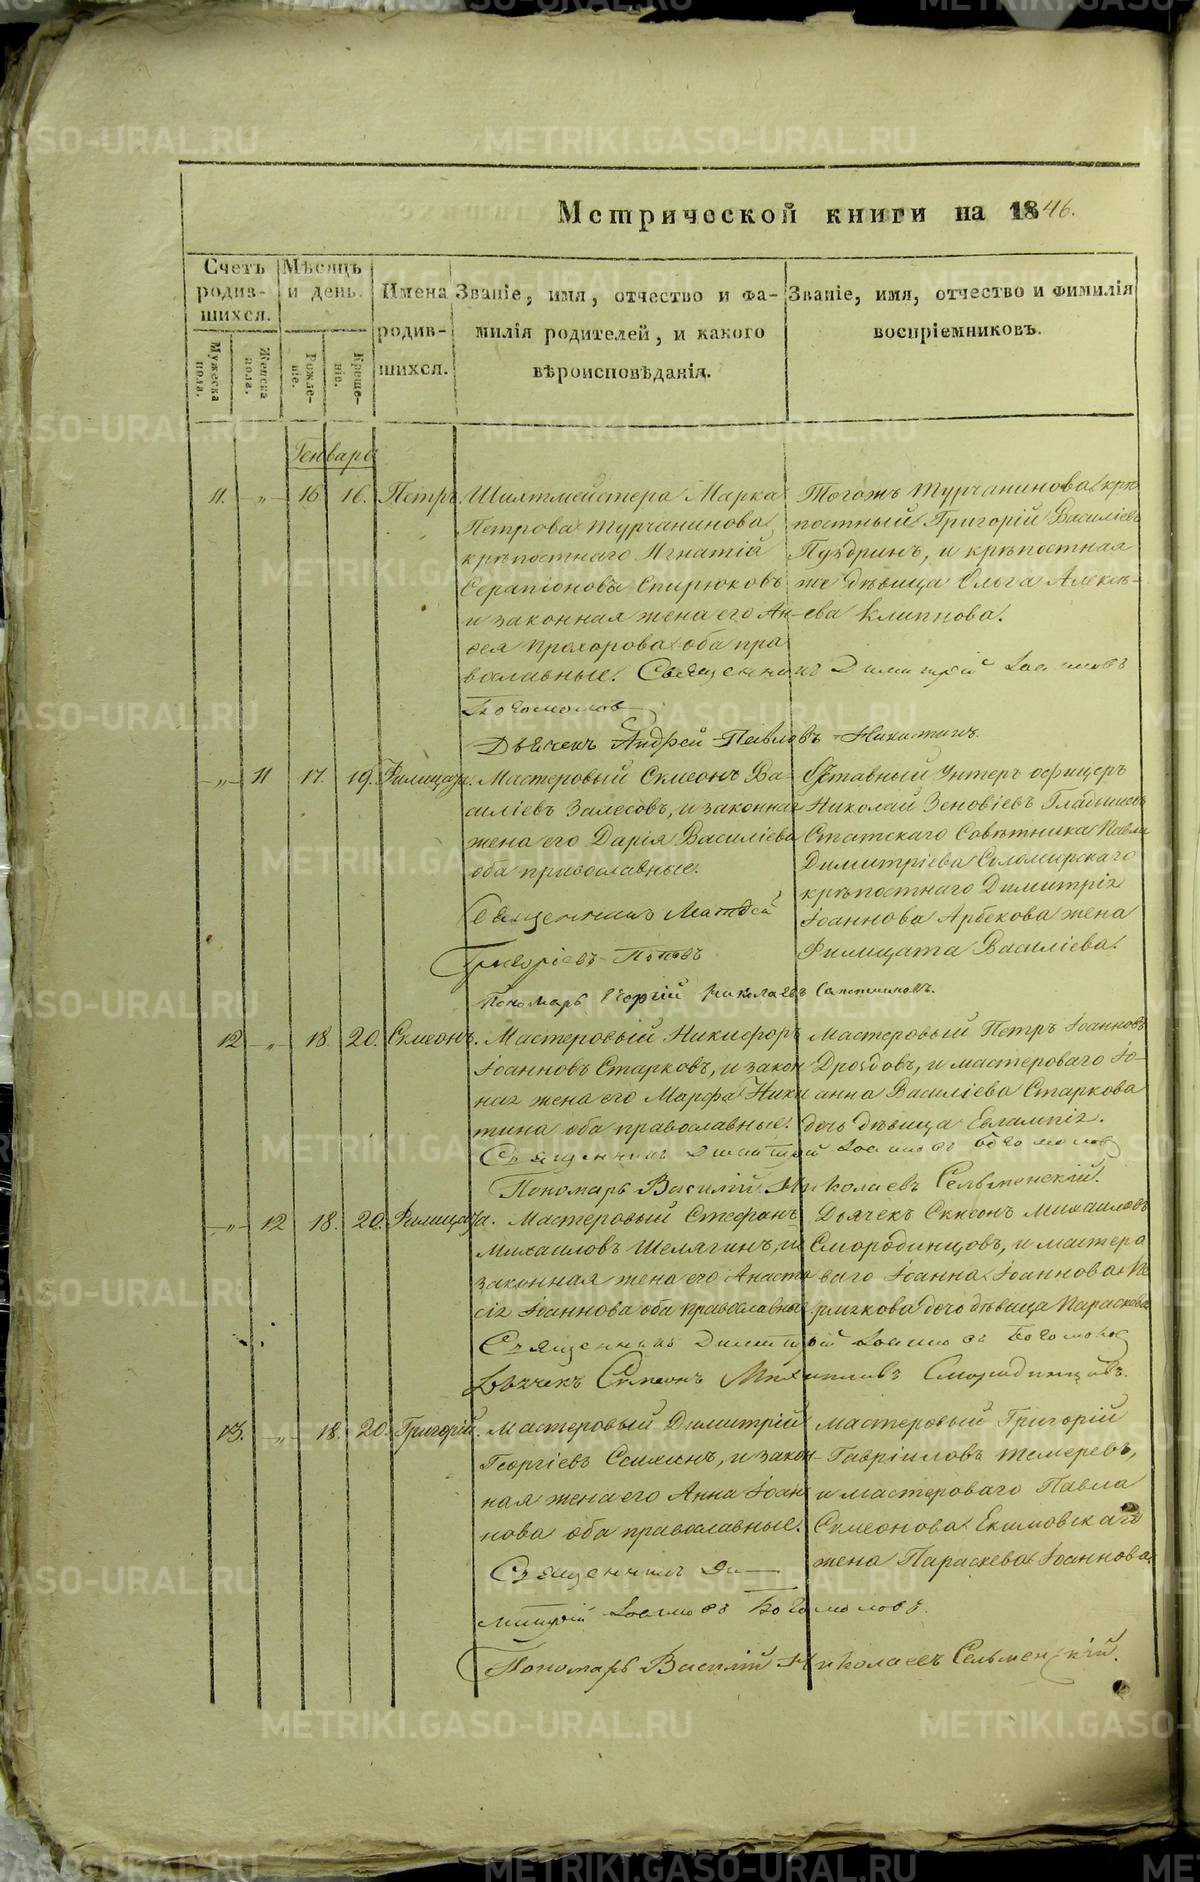 Метрической книги на 1846.
Счетъ родив-шихся.
Мѣсяцъ и день.
Имена родив-шихся.
Званіе, имя, отчество и фа-
милія родителей, и какого
вѣроисповѣданія.
Званіе, имя, отчество и фимилія
воспріемниковъ.
Мужеска пола.
Женска пола.
Рожде-ніе.
Креще-ніе.
Генварь
11. „ 16 16. Петръ
Шихтмейстера Марка
Петрова Турчанинова
крѣпостнаго Игнатій
Серапіоновъ Спирюковъ
и законная жена его Ан-
Прохорова оба пра
вославные. Священникъ Димитрій Іоанновъ
Богомоловъ
Дьячекъ Андрей Павловъ Никитинъ
Тогожъ Турчанинова крѣ
постный Григорій Василіевъ
Пуздринъ, и крѣпостная
же дѣвица Ольга Алексѣ-
ева Клиппова.
„ 11 17. 19. Филицата.
Мастеровый Симеонъ Ва-
силіевъ Залесовъ, и законная
жена его Дарія Василіева
оба православные.
Священникъ Матфей
Григоріевъ Поповъ
Пономарь Георгій Николаевъ
Отставный Унтеръ офицеръ
Николай Зеновіевъ Гладышевъ
Статскаго Совѣтника Павла
Димитріева Соломирскаго
крѣпостнаго Димитрія
Іоаннова Арбекова жена
Филицата Василіева.
12 „ 18 20. Симеонъ.
Мастеровый Никифоръ
Іоанновъ Старковъ, и закон
ная жена его Марфа Ники
тина оба православные.
Священникъ Димитрій Іоанновъ Богомоловъ
Пономарь Василій Николаевъ Сельменскій.
Мастеровый Петръ Іоанновъ
Дроздовъ, и мастероваго Іо-
анна Василіева Старкова
дочь дѣвица Евлампія.
„ 12 18. 20. Филицата.
Мастеровый Стефанъ
Михаиловъ Шелягинъ, и
законная жена его Анаста
сія Іоаннова оба православные
Священникъ Димитрій Іоанновъ Богомоловъ
Дьячекъ Симеонъ Михаиловъ Смородинцовъ.
Дьячекъ Симеонъ Михаиловъ
Смородинцовъ, и мастеро
ваго Іоанна Іоаннова
дочь дѣвица Параскева
13. „ 18. 20. Григорій.
Мастеровый Димитрій
Георгіевъ Сехинъ, и закон-
ная жена его Анна Іоан
нова оба православные.
Священникъ Ди-
митрій Іоанновъ Богомоловъ.
Пономарь Василій Николаевъ Сельменскій.
Мастеровый Григорій
Гавріиловъ Темеревъ,
и мастероваго Павла
Симеонова Екимовскаго
жена Параскева Іоаннова.
METRIKI.GASO-URAL.RU